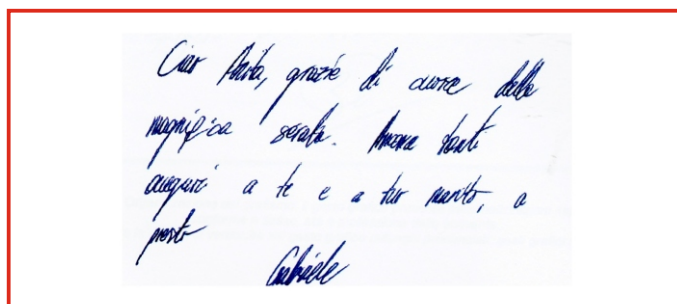 Ciao Anita, grazie di cuore della
magnifica serata. Ancora tanti
auguri a te e a tuo marito, a
presto
Gabriele